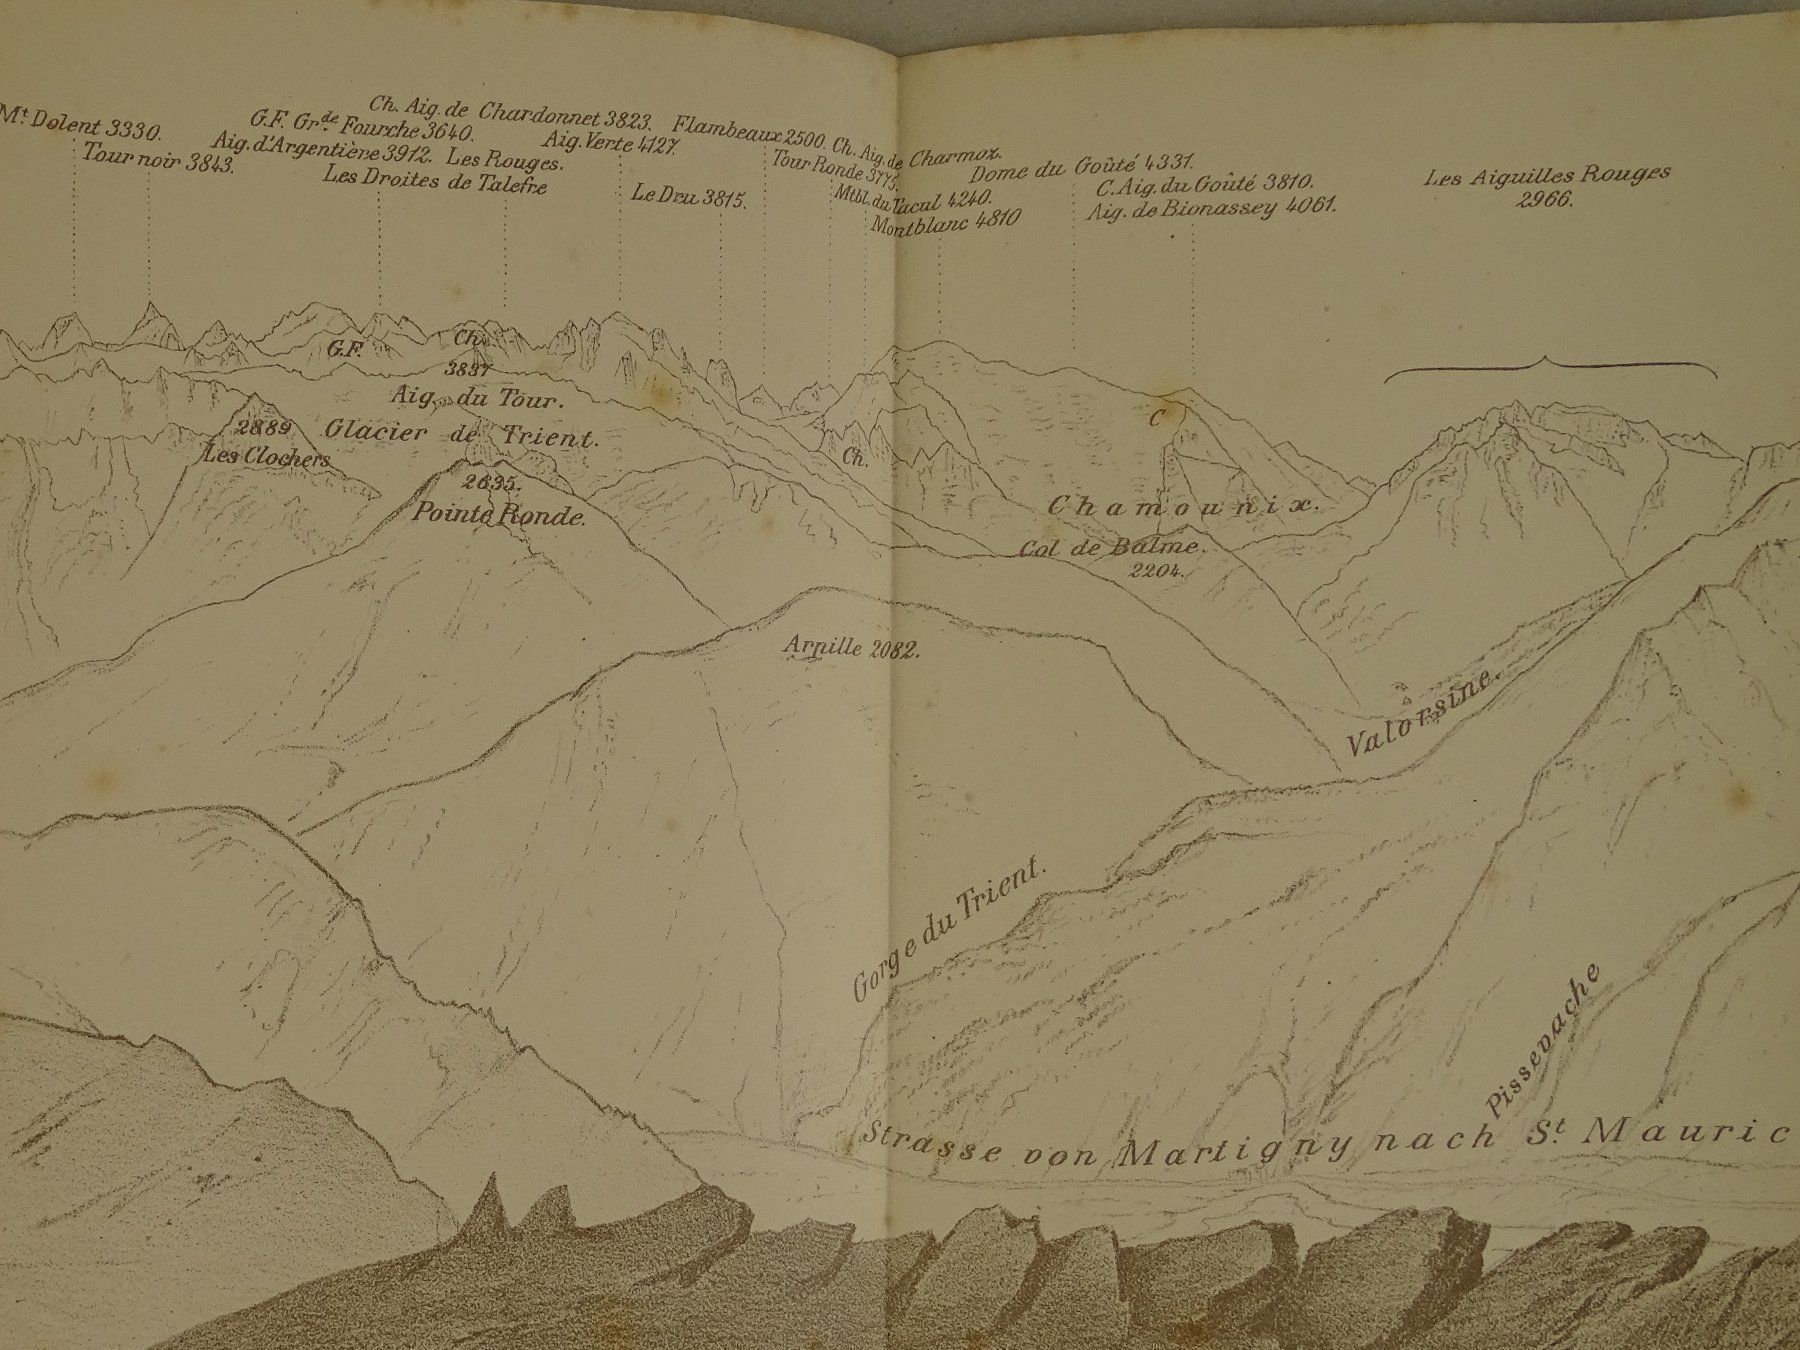 Mt Dolent 3330.
Tour noir 3843.
Ch. Aig. de Chardonnet 3823.
G.F. Grde Fourche 3640.
Aig. d'Argentière 3912. Les Rouges.
Les Droites de Talefre
Aig. Verte 4127.
Le Dru 3815.
Flambeaux 2500.
Ch. Aig. de Charmoz.
Tour Ronde 3775.
Mtbl. du Tacul 4240.
Montblanc 4810
Dome du Goûté 4331.
C. Aig. du Goûté 3810.
Aig. de Bionassey 4061.
Les Aiguilles Rouges
2966.
G.F.
Ch.
3837
Aig. du Tour.
Glacier de Trient.
2889
Les Clochers
2635.
Pointe Ronde.
Ch.
C
Chamounix.
Col de Balme.
2204.
Arpille 2082.
Valorsine.
Gorge du Trient.
Pissevache
Strasse von Martigny nach St Mauric